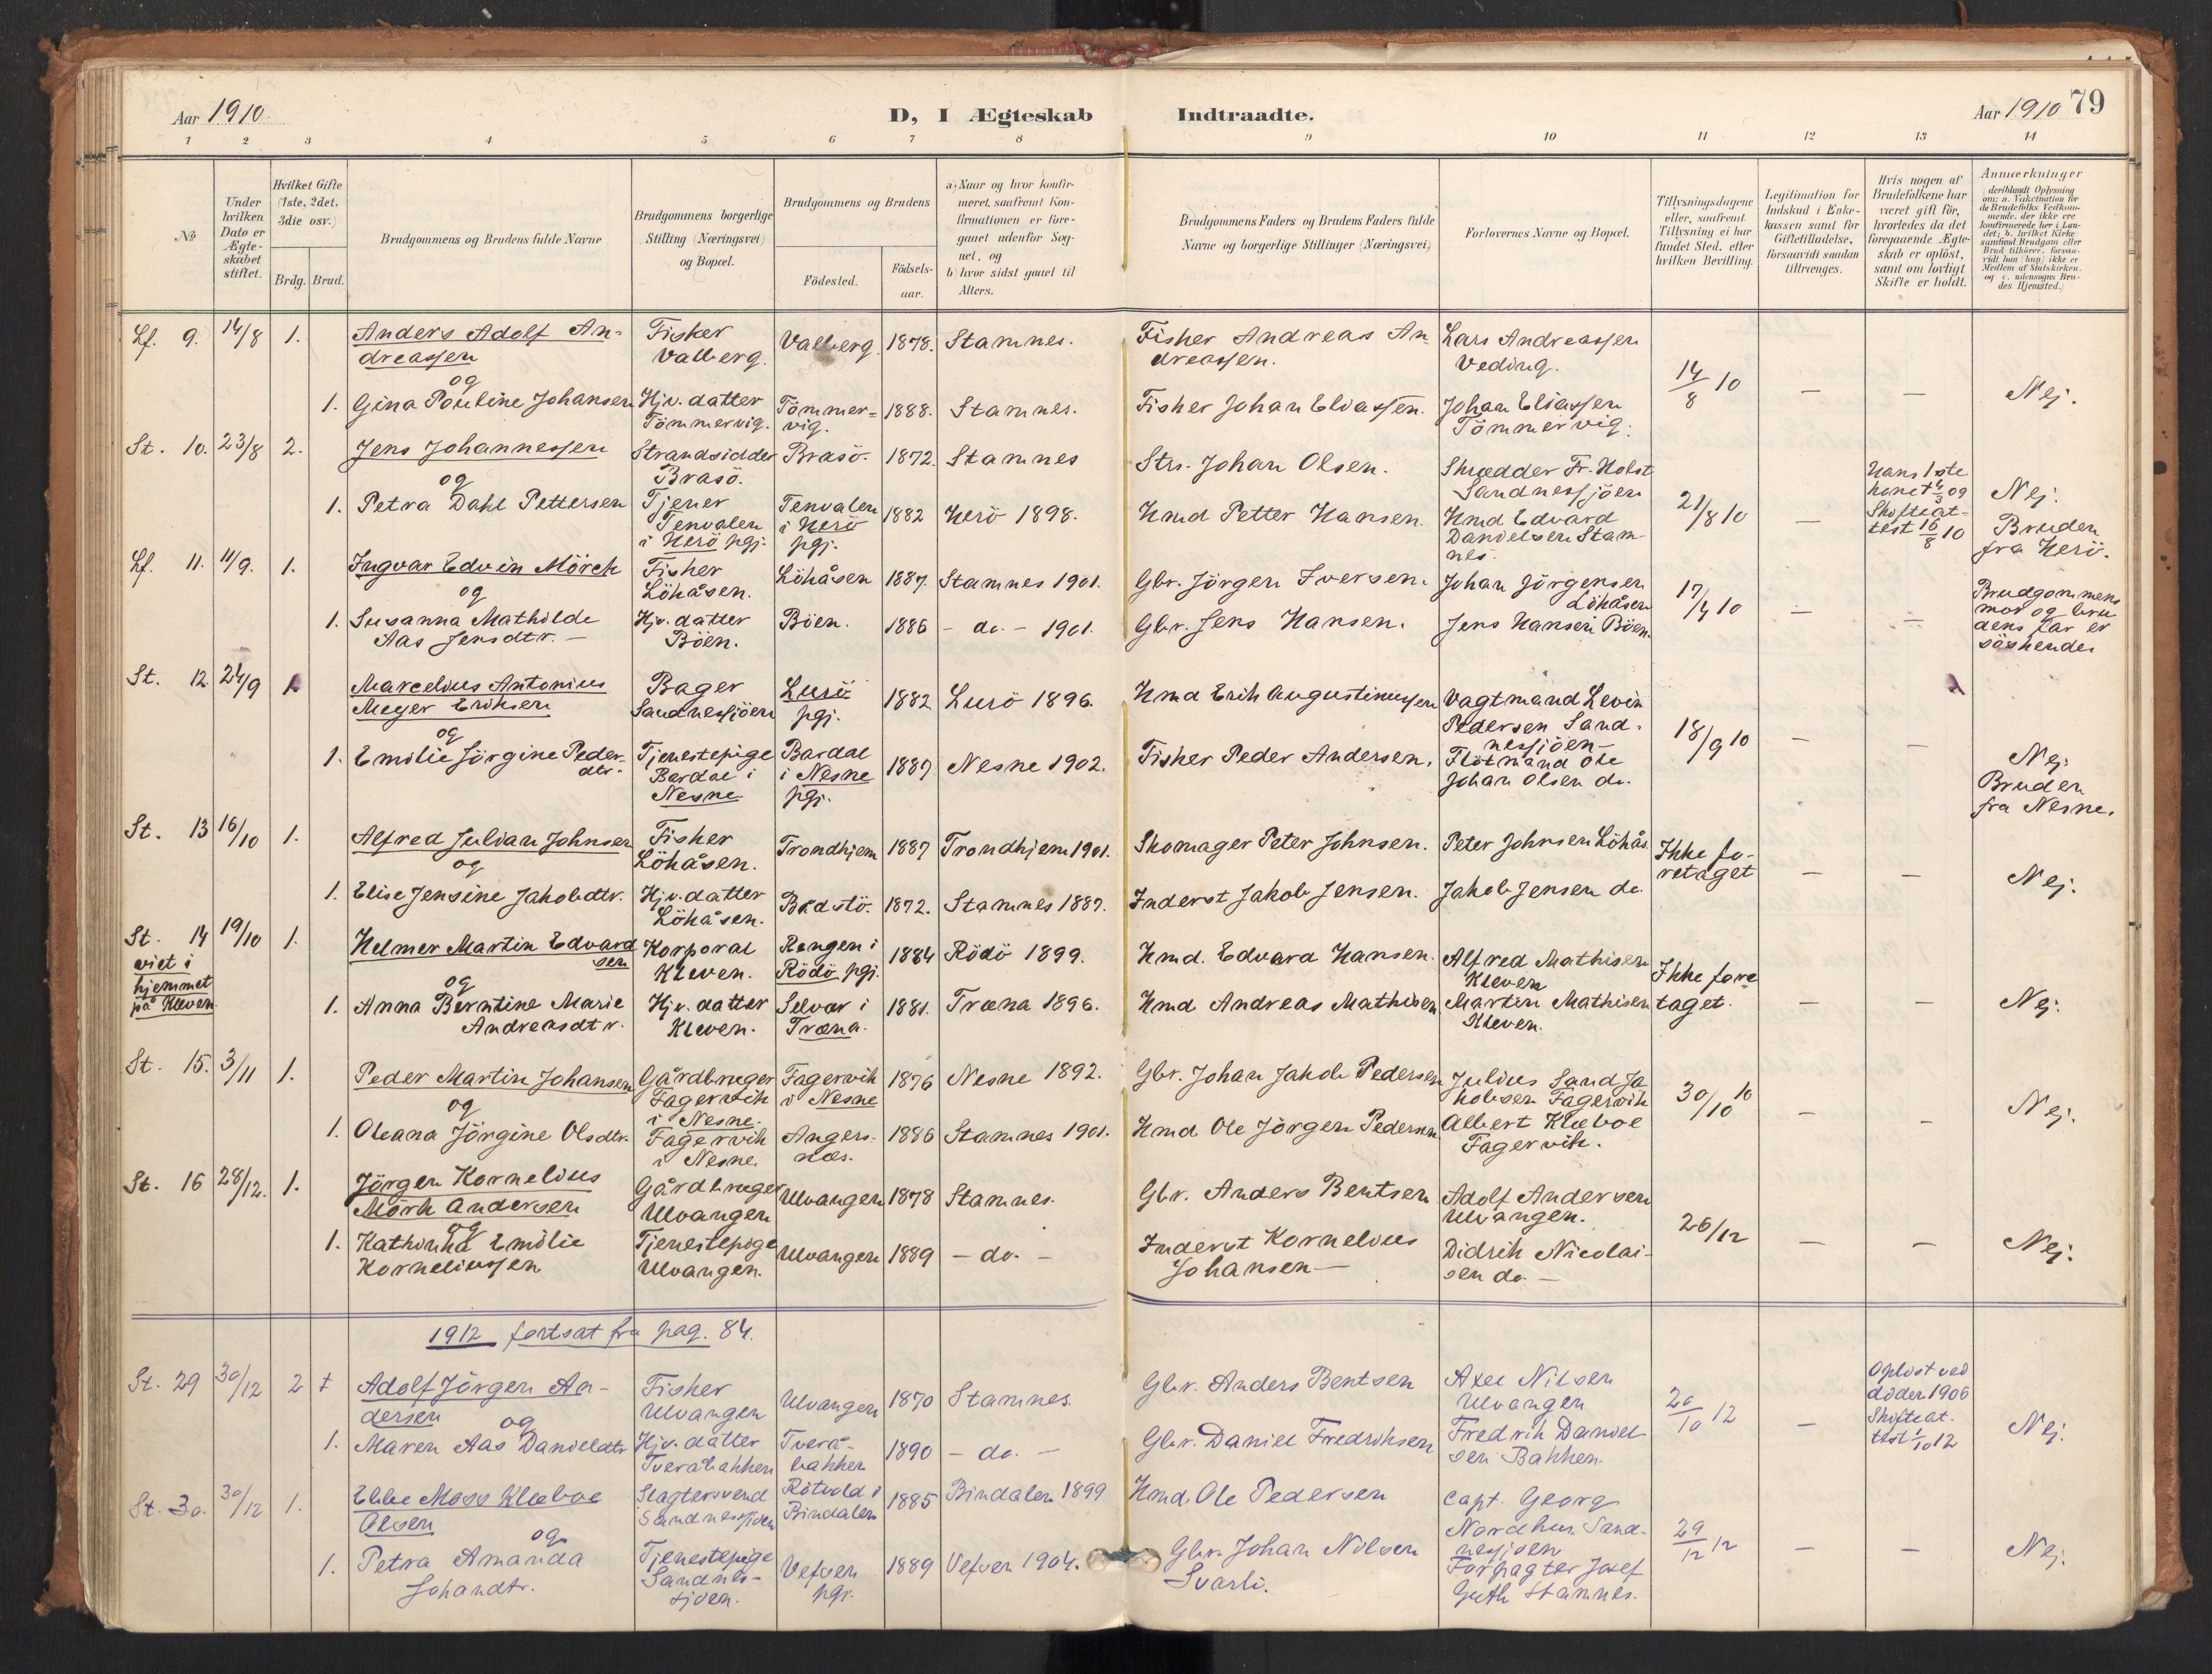 Aar 1910.
D, I Ægteskab Indtraadte.
Aar 1910 79
1 2 3 4 5 6 7 8 9 10 11 12 13 14
No
Under hvilken Dato er Ægteskabet stiftet.
Hvilket Gifte (1ste, 2det, 3die osv.)
Brdg. Brud.
Brudgommens og Brudens fulde Navne
Brudgommens borgerlige Stilling (Næringsvei) og Bopæl.
Brudgommens og Brudens
Födested.
Födselsaar.
a) Naar og hvor konfirmeret, saafremt Konfirmationen er foregaaet udenfor Sognet, og
b) hvor sidst gaaet til Alters.
Brudgommens Faders og Brudens Faders fulde Navne og borgerlige Stillinger (Næringsvei)
Forlovernes Navne og Bopæl.
Tillysningsdagene eller, saafremt Tillysning ei har fundet Sted, efter hvilken Bevilling.
Legitimation for Indskud i Enkekassen samt for Giftetilladelse, forsaavidt saadan tiltrænges.
Hvis nogen af Brudefolkene har været gift för, hvorledes da det foregaaende Ægteskab er oplöst, samt om lovligt Skifte er holdt.
Anmerkninger
(deriblandt Oplysning om: a. Vakcination for de Brudefolks Vedkommende, der ikke ere konfirmerede her i Landet; b. hvilket Kirkesamfund Brudgom eller Brud tilhörer, forsaavidt han (hun) ikke er Medlem af Statskirken, og c. udensogns Brudes Hjemsted.)
Lf. 9. 14/8 1. Anders Adolf Andreassen Fisker Valberg. Valberg. 1878. Stamnes. Fisker Andreas Andreassen. Lars Andreassen Veding. 14/8 10 — — Nej.
og
1. Gina Pauline Johansen Hjv. datter Tömmervig. Tömmervig. 1888. Stamnes. Fisker Johan Eliassen. Johan Eliassen Tömmervig.
St. 10. 23/8 2. Jens Johannessen Strandsidder Brasö. Brasö. 1872. Stamnes Strs. Johan Olsen. Skrædder Fr. Holst Sandnessjöen 21/8 10 — Hans 1ste kone † 4/3 09 Skifteattest 16/8 10 Nej. Bruden fra Herö.
og
1. Petra Dahl Pettersen Tjener Tenvalen i Herö pgj. Tenvalen i Herö pgj. 1882 Herö 1898. Kmd Petter Hansen. Kmd Edvard Danielsen Stamnes.
Lf. 11. 11/9. 1. Ingvar Edvin Mörch Fisker Löhåsen. Löhåsen 1887. Stamnes 1901. Gbr. Jörgen Iversen. Johan Jörgensen Löhåsen — — Brudgommens mor og brudens far er söskende
og
1. Susanna Mathilde Aas Jensdtr. — Hjv. datter Böen. Böen. 1886 — do. — 1901. Gbr. Jens Hansen. Jens Hansen Böen.
St. 12 24/9 Marcelius Antonius Meyer Eriksen Bager Sandnessjöen Lurö pgj. 1882 Lurö 1896. Kmd Erik Augustinussen Vagtmand Levin Pedersen Sandnessjöen — 18/9 10 — — Nej. Bruden fra Nesne.
og
1. Emilie Jörgine Pedersdtr. Tjenestepige Bardal i Nesne Bardal i Nesne pgj. 1887 Nesne 1902. Fisker Peder Andersen. Flötmand Ole Johan Olsen do.
St. 13 16/10 1. Alfred Julian Johnsen Fisker Löhåsen. Trondhjem 1887 Trondhjem 1901. Skomager Peter Johnsen. Peter Johnsen Löhås. Ikke foretaget — — Nej.
og
1. Elise Jensine Jakobdtr. Hjv. datter Löhåsen. 1872. Stamnes 1887. Inderst Jakob Jensen. Jakob Jensen do.
St. 14 19/10 1. Helmer Martin Edvardsen Korporal Kleven. Rengen i Rödö pgj. 1884 Rödö 1899. Kmd. Edvard Hansen. Alfred Mathisen Kleven Ikke foretaget. — — Nej.
viet i hjemmet på Kleven
og
1. Anna Berntine Marie Andreasdtr. Hjv. datter Kleven. Selvær i Træna. 1881. Træna 1896. Kmd Andreas Mathisen Martin Mathisen Kleven.
St. 15. 3/11 1. Peder Martin Johansen Gårdbruger Fagervik i Nesne. Fagervik i Nesne 1876 Nesne 1892. Gbr. Johan Jakob Pedersen Julius Sand Jakobsen Fagervik 30/10 10 — — Nej.
og
1. Oleana Jörgine Olsdtr. Fagervik i Nesne. Angersnes. 1886 Stamnes 1901. Kmd Ole Jörgen Pedersen Albert Klæboe Fagervik.
St. 16 28/12. 1. Jörgen Kornelius Mörk Andersen Gårdbruger Ulvangen Ulvangen 1878 Stamnes. Gbr. Anders Bentsen Adolf Andersen Ulvangen. 26/12 — — Nej.
og
1. Kathinka Emilie Korneliussen Tjenestepige Ulvangen. Ulvangen 1889 — do. — Inderst Kornelius Johansen — Didrik Nicolaisen do. —
1912 fortsat fra pag. 84.
St. 29 30/12 2 Adolf Jörgen Andersen Fisker Ulvangen Ulvangen 1870 Stamnes. Gbr. Anders Bentsen Axel Nilsen Ulvangen 20/10 12 — Oplöst ved döden 1906 Skifteattest 1/10 12 Nej.
og
1. Maren Aas Danieldtr. Hjv. datter Tveråbakken Tveråbakken 1890 — do. — Gbr. Daniel Fredriksen Fredrik Danielsen Bakken.
St. 30. 30/12 1. Ebbe Moss Klæboe Olsen Slagtersvend Sandnessjöen Rötvold i Bindalen 1885 Bindalen 1899 Kmd. Ole Pedersen Capt. Georg Nordhus Sandnessjöen 29/12 12 — — Nej.
og
1. Petra Amanda Johandtr. Tjenestepige Sandnessjöen. Vefsen pgj. 1889 Vefsen 1904. Gbr. Johan Nilsen Svarli. Forpagter Josef Guth Stamnes.